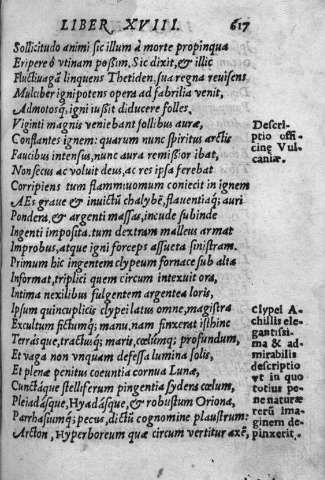 LIBER XVIII. 617
Sollicitudo animi sic illum à morte propinqua
Eripere ô vtinam possim. Sic dixit, & illic
Fluctiuagã linquens Thetiden, sua regna reuisens
Mulciber ignipotens opera ad fabrilia venit,
Admotosq; igni iussit diducere folles.
Viginti magnis veniebant follibus auræ,
Conflantes ignem: quarum nunc spiritus arctis
Faucibus intensus, nunc aura remissior ibat,
Non secus ac voluit deus, ac res ipsa ferebat
Corripiens tum flammiuomum coniecit in ignem
AEs graue & inuictũ chalybẽ, flauentiaq; auri
Pondera, & argenti massas, incude subinde
Ingenti imposita. tum dextram malleus armat
Improbus, atque igni forceps assueta sinistram.
Primum hic ingentem clypeum fornace sub alta
Informat, triplici quem circum intexuit ora,
Intima nexilibus fulgentem argentea loris,
Ipsum quincuplicis clypei latus omne, magistra
Excultum fictumq; manu, nam finxerat istihinc
Terrásque, tractumq; maris, cœlumq; profundum,
Et vaga non vnquam defessa lumina solis,
Et plenæ penitus coeuntia cornua Lunæ,
Cunctáque stelliferum pingentia syders cœlum,
Pleiadásque, Hyadásque, & robustum Oriona,
Parrhasiumq; pecus, dictũ cognomine plaustrum:
Arcton, Hyperboreum quæ circum vertitur axẽ,
Descri-
ptio offi-
cinę Vul-
caniæ.
Clypei A-
chillis ele-
gantissi-
ma & ad-
mirabilis
descriptio
vt in quo
totius pe-
ne naturæ
rerũ ima-
ginem de-
pinxerit.